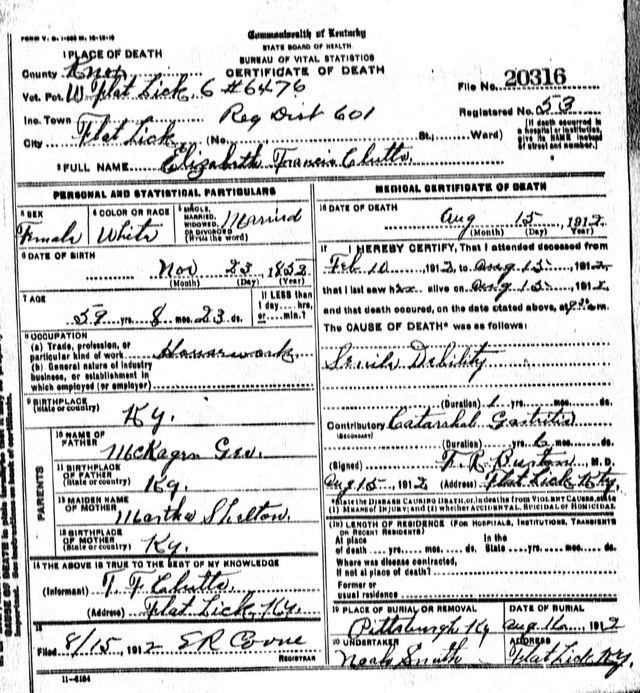 FORM V. S. 1-
Commonwealth of Kentucky
STATE BOARD OF HEALTH
BUREAU OF VITAL STATISTICS
CERTIFICATE OF DEATH
1 PLACE OF DEATH
County Knox
Vot. Pct. W Flat Lick 6 #6476
File No. 20316
Inc. Town Reg Dist 601
Registered No. 53
City Flat Lick (No. St.; Ward)
[If death occurred in a hospital or institution, give its NAME instead of street and number.]
2 FULL NAME Elizabeth Francis Clutts.
PERSONAL AND STATISTICAL PARTICULARS
3 SEX
Female
4 COLOR OR RACE
White
5 SINGLE, MARRIED, WIDOWED, OR DIVORCED (Write the word)
Married
6 DATE OF BIRTH
Nov 23, 1852
(Month) (Day) (Year)
7 AGE
59 yrs. 8 mos. 23 ds.
If LESS than 1 day.... hrs. or.... min.?
8 OCCUPATION
(a) Trade, profession, or particular kind of work Housework
(b) General nature of industry business, or establishment in which employed (or employer)
9 BIRTHPLACE
(State or country) Ky.
PARENTS
10 NAME OF FATHER
McKagen Geo.
11 BIRTHPLACE OF FATHER
(State or country) Ky.
12 MAIDEN NAME OF MOTHER
Martha Shelton.
13 BIRTHPLACE OF MOTHER
(State or country) Ky.
14 THE ABOVE IS TRUE TO THE BEST OF MY KNOWLEDGE
(Informant) T. F. Clutts.
(Address) Flat Lick, Ky.
15
Filed 8/15, 1912
REGISTRAR
11-5184
MEDICAL CERTIFICATE OF DEATH
16 DATE OF DEATH
Aug 15, 1912
(Month) (Day) (Year)
17 I HEREBY CERTIFY, That I attended deceased from
Feb 10, 1912, to Aug 15, 1912,
that I last saw her alive on Aug 15, 1912,
and that death occured, on the date stated above, at
The CAUSE OF DEATH* was as follows:
Senile Debility
(Duration) 1 yrs. mos. ds.
Contributory Catarrhal Gastritis
(SECONDARY)
(Duration) yrs. 6 mos. ds.
(Signed) T. R. Burton, M. D.
Aug 15, 1912 (Address) Flat Lick Ky.
*State the DISEASE CAUSING DEATH, or, in deaths from VIOLENT CAUSES, state (1) MEANS OF INJURY; and (2) whether ACCIDENTAL, SUICIDAL or HOMICIDAL
(18) LENGTH OF RESIDENCE (FOR HOSPITALS, INSTITUTIONS, TRANSIENTS OR RECENT RESIDENTS)
At place of death yrs. mos. ds. In the State yrs. mos. ds.
Where was disease contracted,
If not at place of death?
Former or
usual residence
19 PLACE OF BURIAL OR REMOVAL
Pittsburgh Ky
DATE OF BURIAL
Aug 16, 1912
20 UNDERTAKER
Smith
ADDRESS
Flat Lick Ky